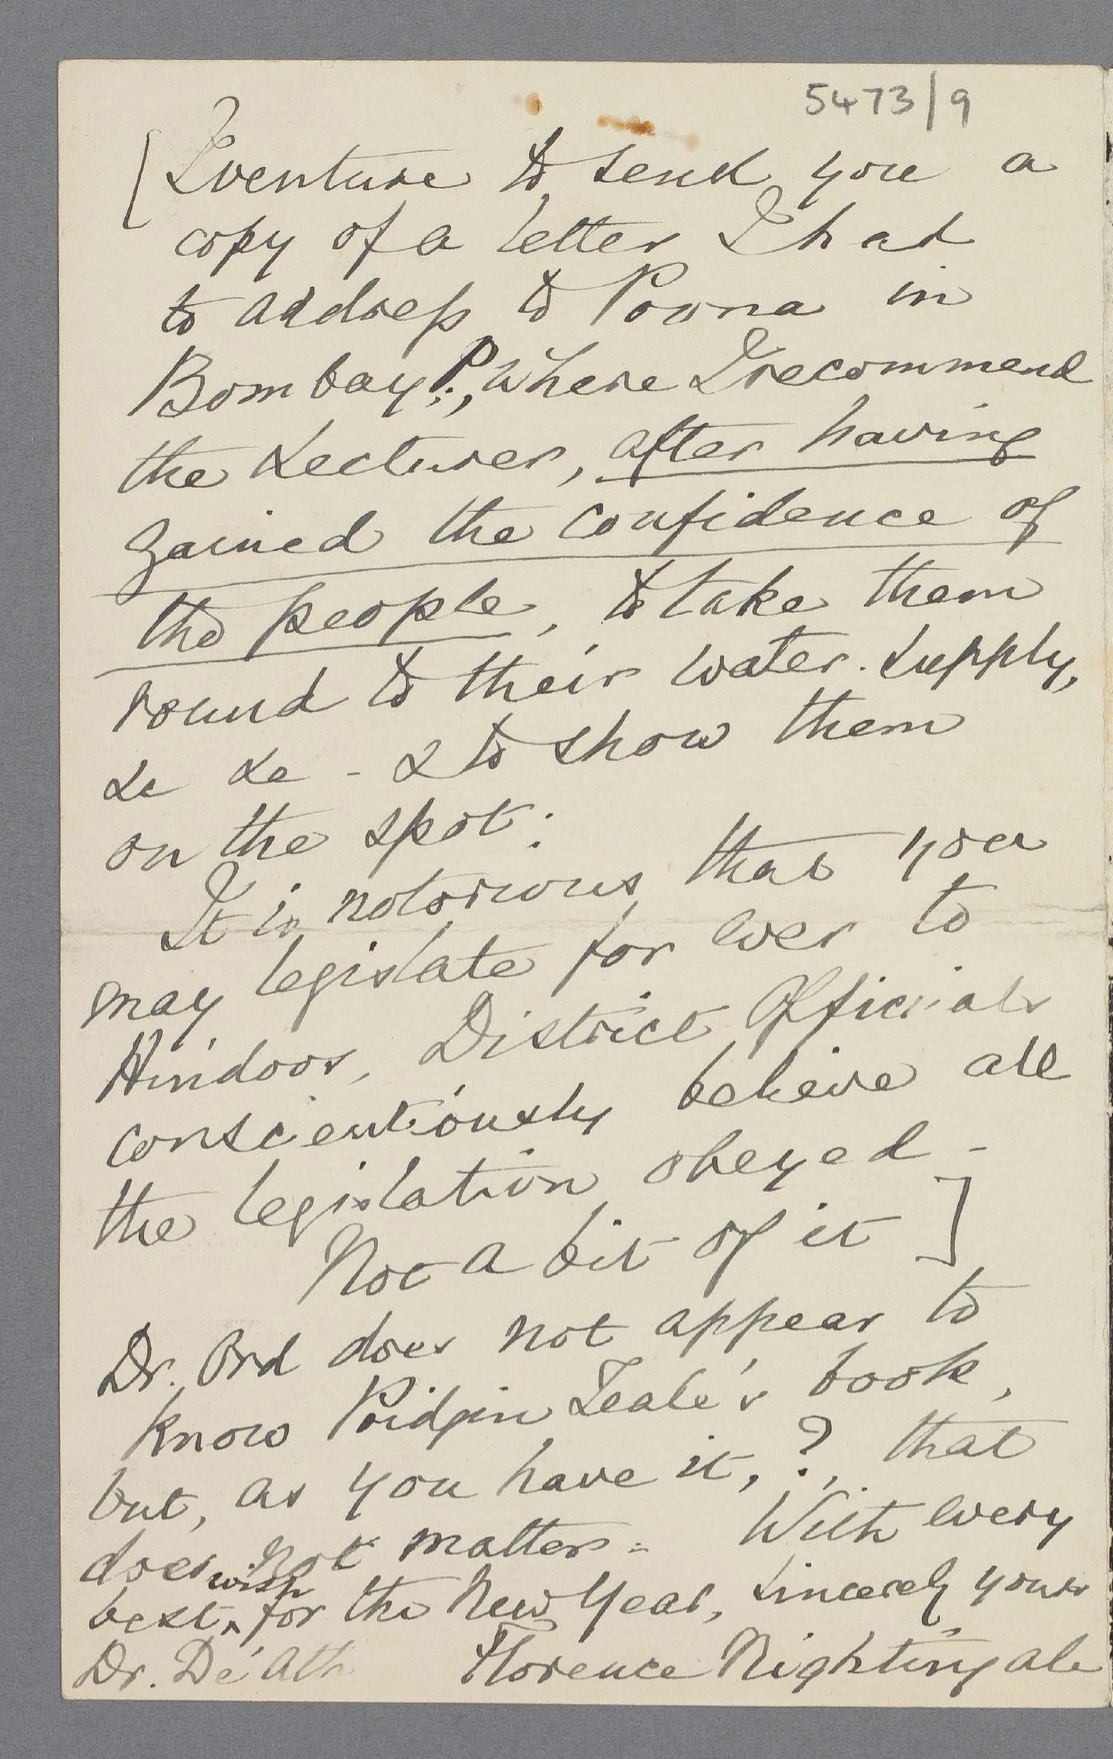 5473/9
[I venture to send you a
copy of a letter I had
to address to Poona in
Bombay P., where I recommend
the Lecturer, after having
gained the confidence of
the people, to take them
round to their water-supply,
&c &c - & to show them
on the spot:
It is notorious that you
may legislate for ever to
Hindoos, District Officials
conscientiously believe all
the legislation obeyed -
Not a bit of it]
Dr. Ord does not appear to
know Pridgin Teale's book,
but, as you have it, ?, that
does not matter - With every
best wish for the New Year, sincerely yours
Dr. De'Ath Florence Nightingale